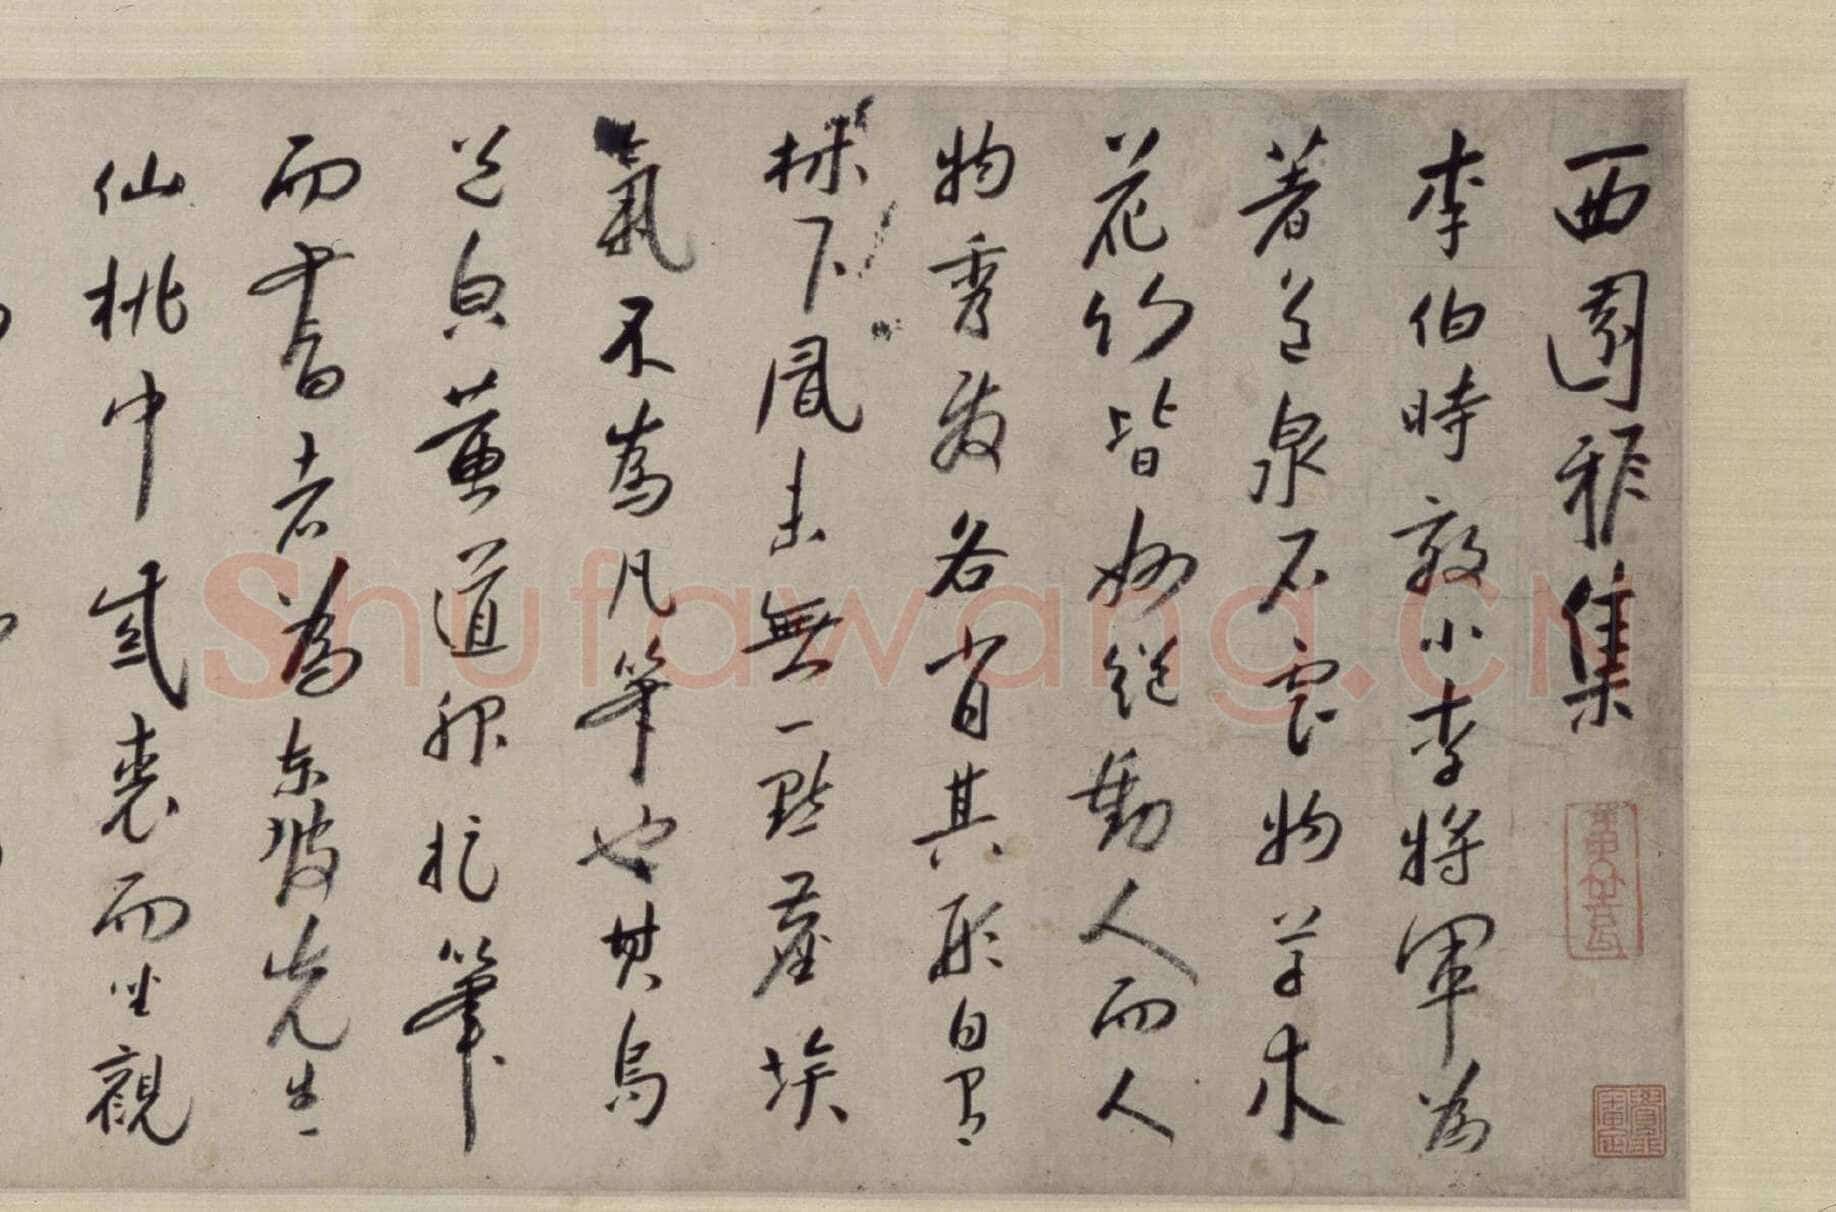 西園雅集
李伯時效小李將軍為
著色泉石雲物草木
花竹皆妙絕動人而人
物秀發各肖其形自有
林下風味無一點塵埃
氣不為凡筆也其烏
黃道服捉筆
而書者為東坡先生
仙桃巾紫裘而坐觀
Shufawang.CN